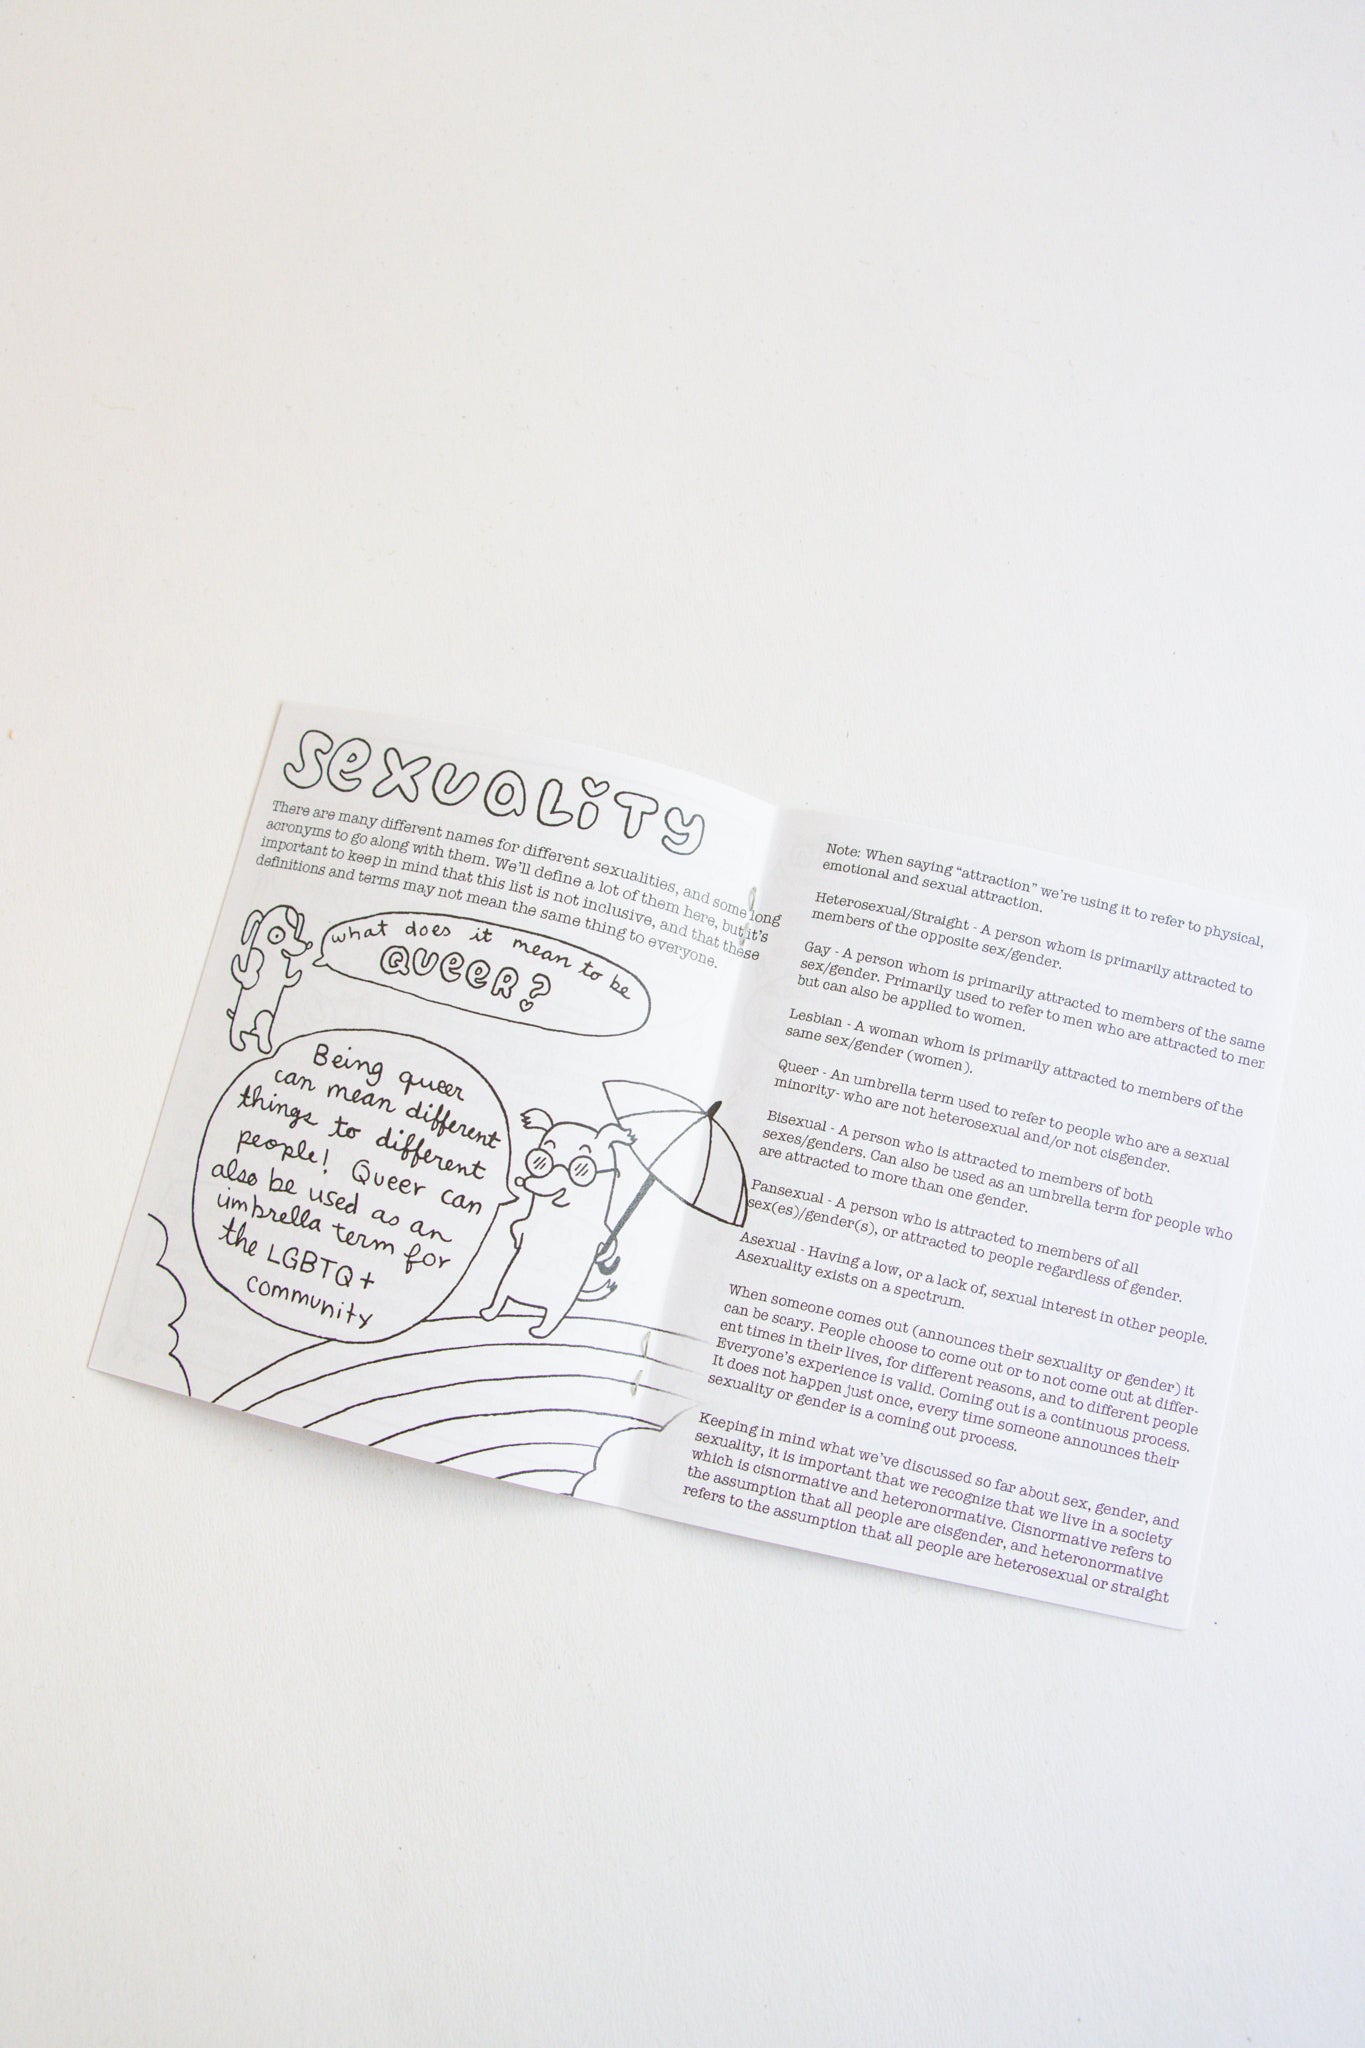 SEXUALITY
There are many different names for different sexualities, and some long
acronyms to go along with them. We'll define a lot of them here, but it's
important to keep in mind that this list is not inclusive, and that these
definitions and terms may not mean the same thing to everyone.
what does it mean to be
QUEER?
Being queer
can mean different
things to different
people! Queer can
also be used as an
umbrella term for
the LGBTQ+
community
Note: When saying "attraction" we're using it to refer to physical,
emotional and sexual attraction.
Heterosexual/Straight - A person whom is primarily attracted to
members of the opposite sex/gender.
Gay - A person whom is primarily attracted to members of the same
sex/gender. Primarily used to refer to men who are attracted to men
but can also be applied to women.
Lesbian - A woman whom is primarily attracted to members of the
same sex/gender (women).
Queer - An umbrella term used to refer to people who are a sexual
minority- who are not heterosexual and/or not cisgender.
Bisexual - A person who is attracted to members of both
sexes/genders. Can also be used as an umbrella term for people who
are attracted to more than one gender.
Pansexual - A person who is attracted to members of all
sex(es)/gender(s), or attracted to people regardless of gender.
Asexual - Having a low, or a lack of, sexual interest in other people.
Asexuality exists on a spectrum.
When someone comes out (announces their sexuality or gender) it
can be scary. People choose to come out or to not come out at differ-
ent times in their lives, for different reasons, and to different people
Everyone's experience is valid. Coming out is a continuous process.
It does not happen just once, every time someone announces their
sexuality or gender is a coming out process.
Keeping in mind what we've discussed so far about sex, gender, and
sexuality, it is important that we recognize that we live in a society
which is cisnormative and heteronormative. Cisnormative refers to
the assumption that all people are cisgender, and heteronormative
refers to the assumption that all people are heterosexual or straight